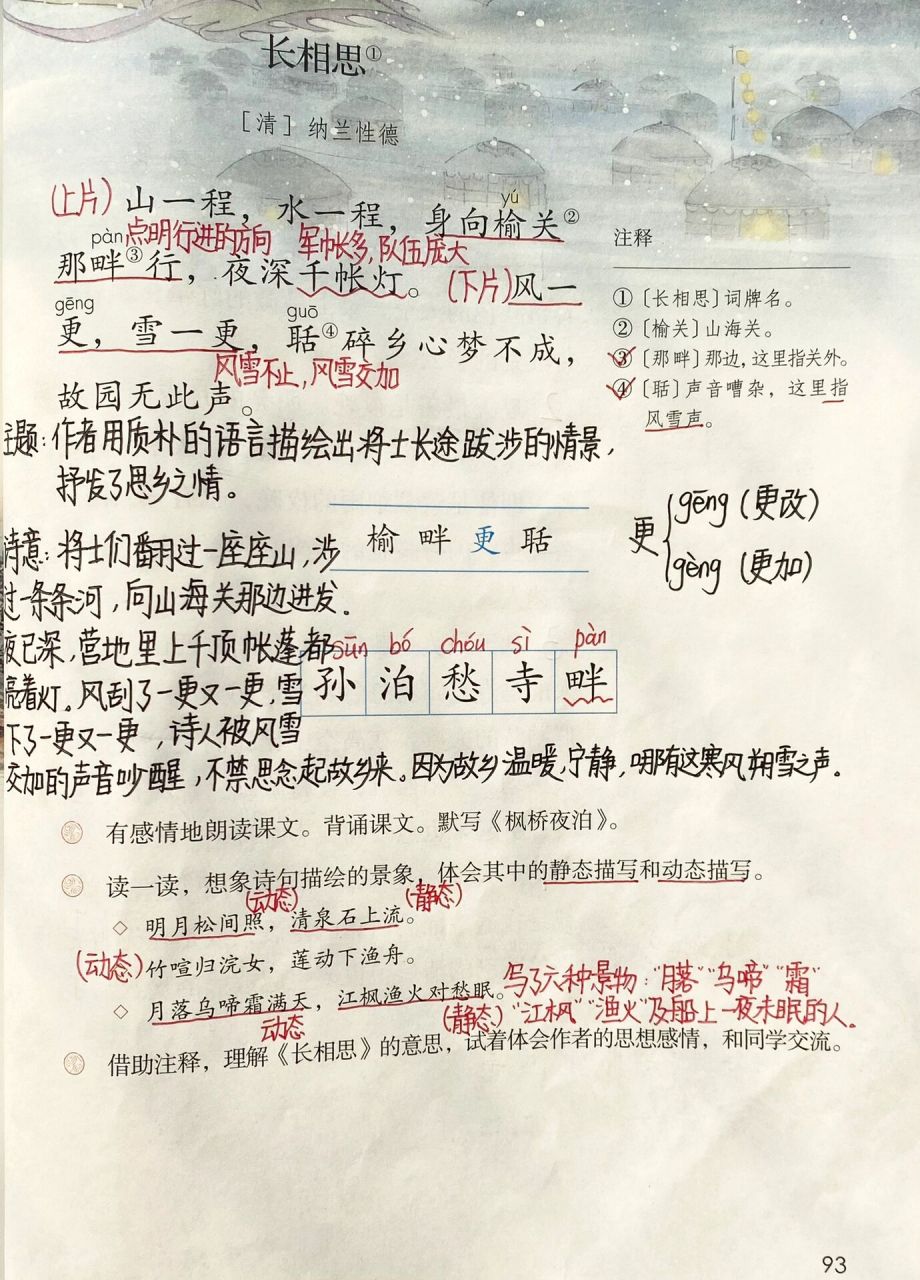 长相思①
［清］ 纳兰性德
(上片) 山一程，水一程，身向榆关②
yú
pàn 点明行进的方向 军帐多,队伍庞大
那畔③行，夜深千帐灯。(下片)风一
gēng guō
更，雪一更，聒④碎乡心梦不成，
风雪不止,风雪交加
故园无此声。
注释
①〔长相思〕词牌名。
②〔榆关〕山海关。
③〔那畔〕那边，这里指关外。
④〔聒〕声音嘈杂，这里指
风雪声。
主题:作者用质朴的语言描绘出将士长途跋涉的情景,
抒发了思乡之情。
榆 畔 更 聒
更 gēng (更改)
gèng (更加)
诗意:将士们翻过一座座山,涉
过一条条河,向山海关那边进发.
夜已深,营地里上千顶帐蓬都
亮着灯.风刮了一更又一更,雪
下了一更又一更,诗人被风雪
交加的声音吵醒,不禁思念起故乡来。因为故乡温暖,宁静,哪有这寒风朔雪之声.
sūn bó chóu sì pàn
孙 泊 愁 寺 畔
有感情地朗读课文。背诵课文。默写《枫桥夜泊》。
读一读，想象诗句描绘的景象，体会其中的静态描写和动态描写。
(动态) (静态)
◇ 明月松间照，清泉石上流。
(动态) 竹喧归浣女，莲动下渔舟。
◇ 月落乌啼霜满天，江枫渔火对愁眠。写了六种景物:"月落""乌啼""霜"
动态 (静态) "江枫""渔火"及船上一夜未眠的人.
借助注释，理解《长相思》的意思，试着体会作者的思想感情，和同学交流。
93